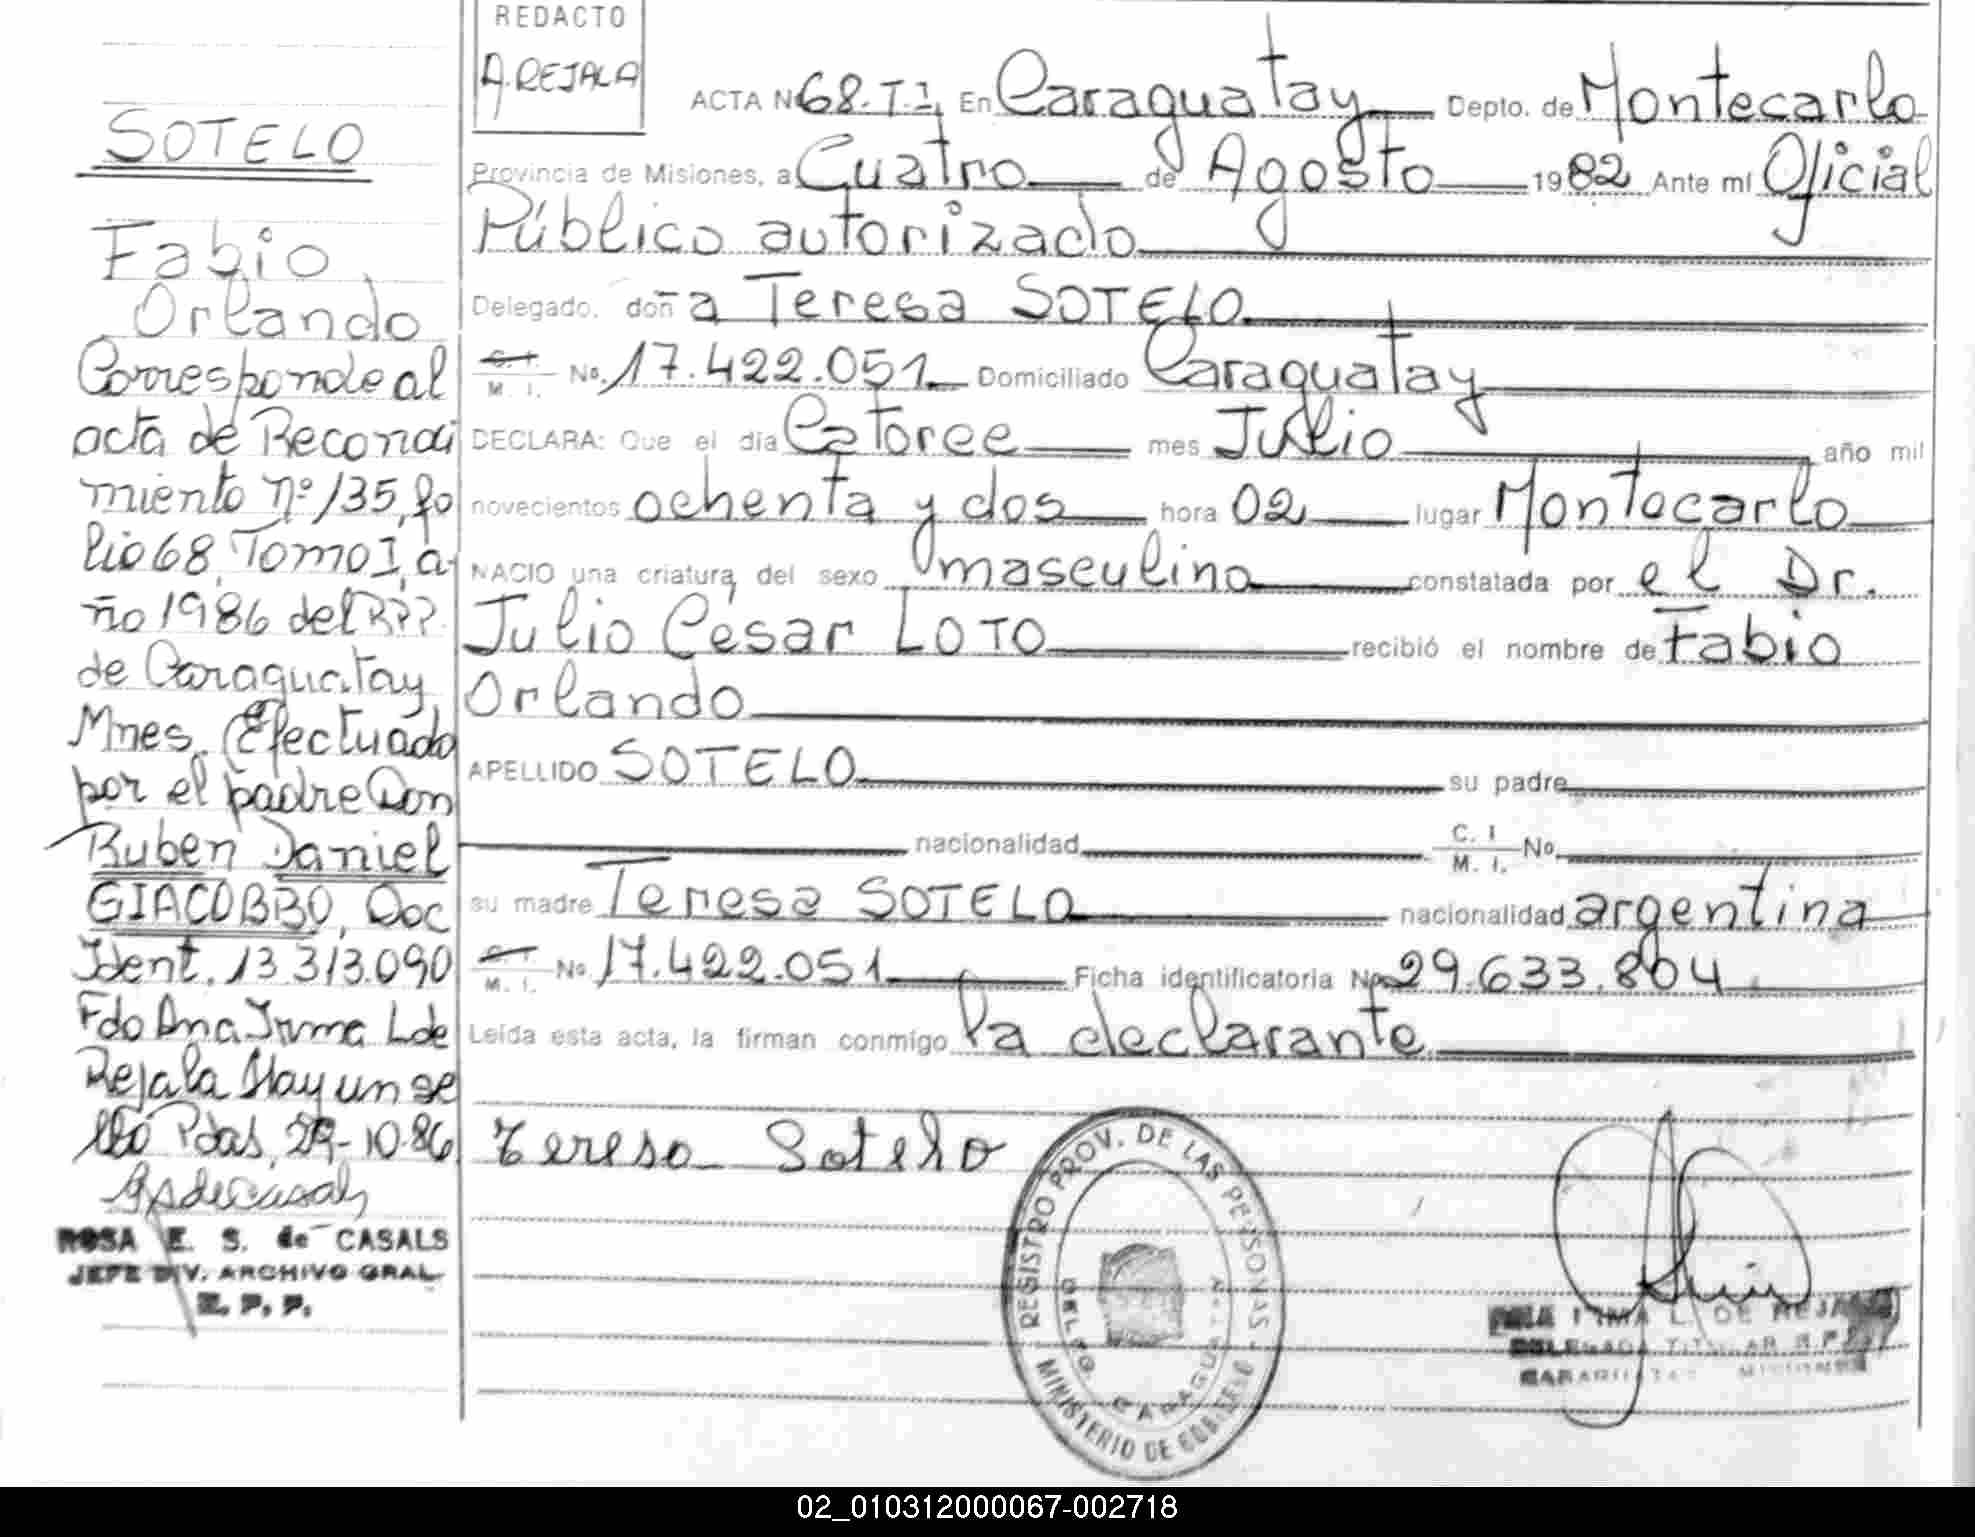 REDACTO
A. REJALA
SOTELO
Fabio
Orlando
Corresponde al
acta de Reconoci
miento Nº 135, fo
lio 68, Tomo I, a-
ño 1986 del R.P.P.
de Caraguatay
Mnes. Efectuado
por el padre Don
Ruben Daniel
GIACOBBO, Doc
Ident. 13.313.090
Fdo Ana Irma L de
Rejala Hay un se
llo Pdas, 29-10-86
ROSA E. S. de CASALS
JEFE DIV. ARCHIVO GRAL
R. P. P.
ACTA Nº 68. T. I, En Caraguatay Depto. de Montecarlo
Provincia de Misiones, a Cuatro de Agosto 1982 Ante mí Oficial
Público autorizado
Delegado, doña Teresa SOTELO
C. I. M. I. Nº. 17.422.051 Domiciliado Caraguatay
DECLARA: Que el día Catorce mes Julio año mil
novecientos ochenta y dos hora 02 lugar Montecarlo
NACIO una criatura del sexo masculino constatada por el Dr.
Julio César LOTO recibió el nombre de Fabio
Orlando
APELLIDO SOTELO su padre
nacionalidad C. I. M. I. Nº
su madre Teresa SOTELO nacionalidad argentina
C. I. M. I. Nº 17.422.051 Ficha identificatoria Nº 29.633.804
Leída esta acta, la firman conmigo la declarante
Teresa Sotelo
REGISTRO PROV. DE LAS PERSONAS
MINISTERIO DE GOBIERNO
DELEG. CARAGUATAY
ANA IRMA L. DE REJALA
DELEGADA TITULAR R.P.P.
CARAGUATAY MISIONES
02_010312000067-002718